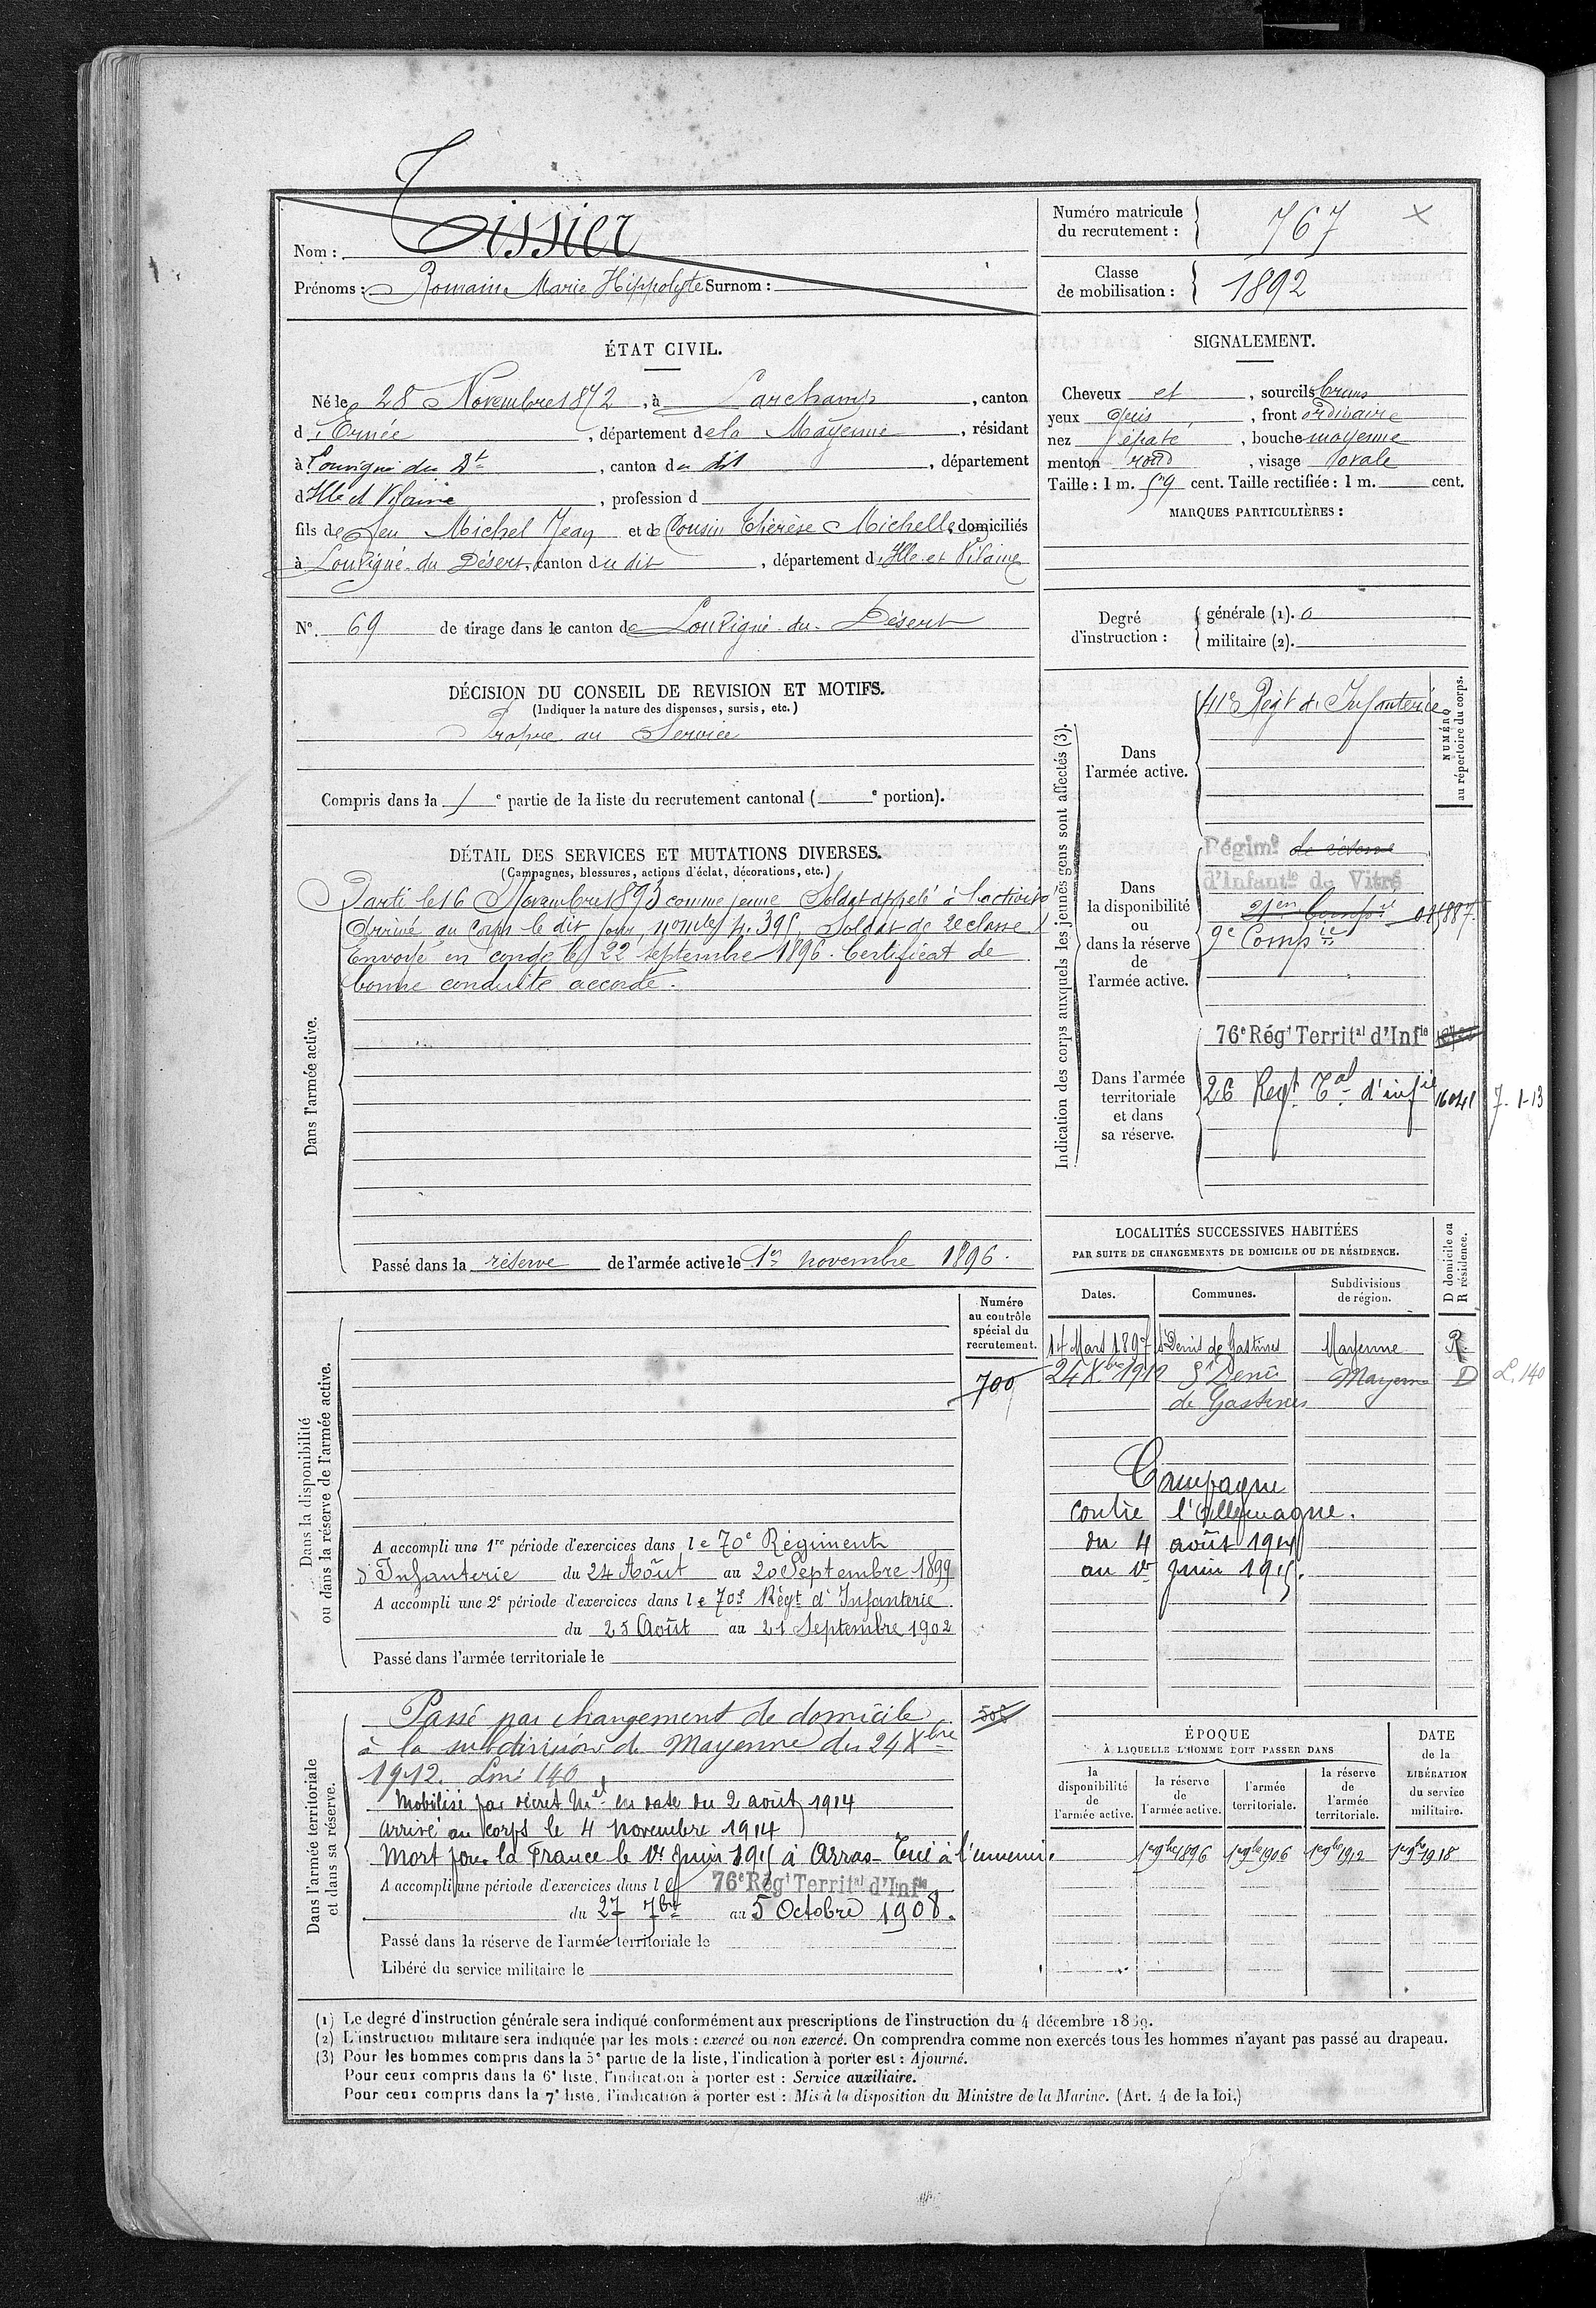 Tissier
Nom :
Prénoms : Romain Marie Hippolyte Surnom :
Numéro matricule du recrutement : 767 X
Classe de mobilisation : 1892
ÉTAT CIVIL.
Né le 28 Novembre 1872, à Larchamp, canton
d'Ernée, département de la Mayenne, résidant
à Louvigné du Dt, canton du dit, département
d'Ille et Vilaine, profession d
fils de feu Michel Jean et de Cousin Thérèse Michelle, domiciliés
à Louvigné du Désert, canton du dit, département d'Ille et Vilaine
N° 69 de tirage dans le canton de Louvigné du Désert
SIGNALEMENT.
Cheveux et, sourcils bruns
yeux gris, front ordinaire
nez épaté, bouche moyenne
menton rond, visage ovale
Taille : 1 m. 59 cent. Taille rectifiée : 1 m. cent.
MARQUES PARTICULIÈRES :
Degré d'instruction :
générale (1). 0
militaire (2).
DÉCISION DU CONSEIL DE REVISION ET MOTIFS.
(Indiquer la nature des dispenses, sursis, etc.)
Propre au Service
Compris dans la 1e partie de la liste du recrutement cantonal ( e portion).
DÉTAIL DES SERVICES ET MUTATIONS DIVERSES.
(Campagnes, blessures, actions d'éclat, décorations, etc.)
Dans l'armée active.
Parti le 16 Novembre 1893 comme jeune Soldat appelé à l'activité
Arrivé au Corps le dit jour, 4.395, Soldat de 2e classe
Envoyé en congé le 22 septembre 1896. Certificat de
bonne conduite accordé.
Passé dans la réserve de l'armée active le 1er novembre 1896.
Indication des corps auxquels les jeunes gens sont affectés (3).
NUMÉRO au répertoire du corps.
Dans l'armée active.
41e Régt d'Infanterie
Dans la disponibilité ou dans la réserve de l'armée active.
Régimt de réserve
d'Infantie de Vitré
9e Compie
Dans l'armée territoriale et dans sa réserve.
76e Régt Territal d'Infie
26 Regt Tal d'infie 16041 7-1-13
LOCALITÉS SUCCESSIVES HABITÉES
PAR SUITE DE CHANGEMENTS DE DOMICILE OU DE RÉSIDENCE.
D domicile ou R résidence.
Dates. Communes. Subdivisions de région.
14 Mars 1897 St Denis de Gastines Mayenne R.
24 Xbre 1912 St Denis Mayenne D L. 140
de Gastines
Campagne
contre l'Allemagne.
du 4 août 1914
au 1er Juin 1915.
Dans la disponibilité ou dans la réserve de l'armée active.
Numéro au contrôle spécial du recrutement.
700
A accompli une 1re période d'exercices dans le 70e Régiment
d'Infanterie du 24 Août au 20 Septembre 1899
A accompli une 2e période d'exercices dans le 70e Régt d'Infanterie
du 25 Août au 21 Septembre 1902
Passé dans l'armée territoriale le
Dans l'armée territoriale et dans sa réserve.
Passé par changement de domicile
à la subdivision de Mayenne du 24 Xbre
1912. 140
Mobilisé par décret Mel en date du 2 août 1914
arrivé au corps le 4 novembre 1914
Mort pour la France le 1er Juin 1915 à Arras Tué à l'ennemi.
A accompli une période d'exercices dans le 76e Régt Territal d'Infie
du 27 7bre au 5 Octobre 1908.
Passé dans la réserve de l'armée territoriale le
Libéré du service militaire le
ÉPOQUE
À LAQUELLE L'HOMME DOIT PASSER DANS
la disponibilité de l'armée active.
la réserve de l'armée active.
l'armée territoriale.
la réserve de l'armée territoriale.
DATE de la LIBÉRATION du service militaire.
1er 9bre 1896 1er 9bre 1906 1er 9bre 1912 1er 9bre 1918
(1) Le degré d'instruction générale sera indiqué conformément aux prescriptions de l'instruction du 4 décembre 1889.
(2) L'instruction militaire sera indiquée par les mots : exercé ou non exercé. On comprendra comme non exercés tous les hommes n'ayant pas passé au drapeau.
(3) Pour les hommes compris dans la 5e partie de la liste, l'indication à porter est : Ajourné.
Pour ceux compris dans la 6e liste, l'indication à porter est : Service auxiliaire.
Pour ceux compris dans la 7e liste, l'indication à porter est : Mis à la disposition du Ministre de la Marine. (Art. 4 de la loi.)